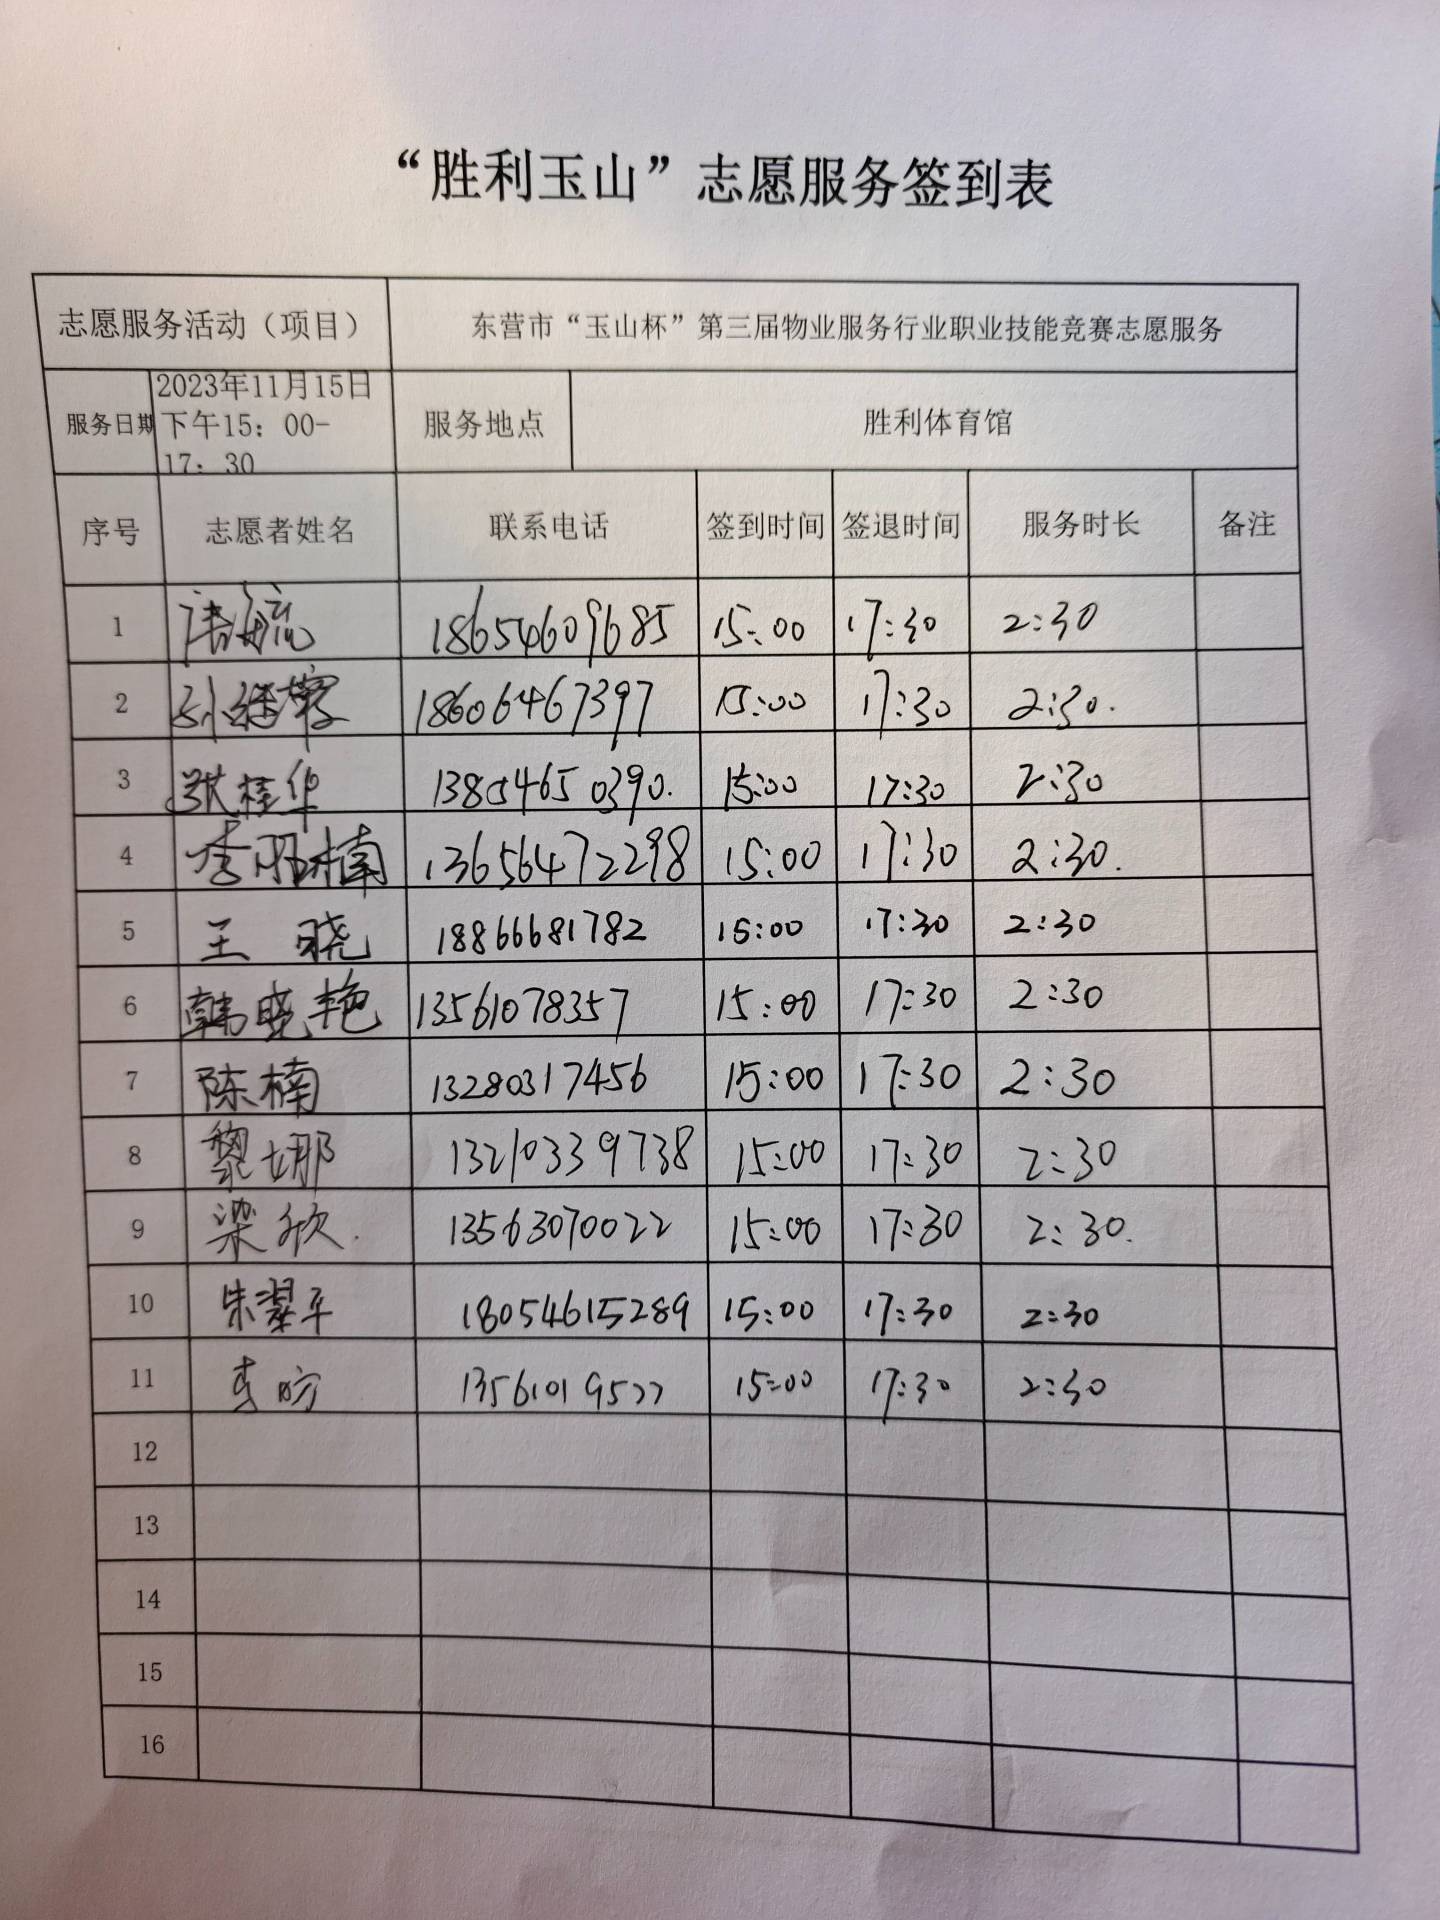 “胜利玉山”志愿服务签到表
志愿服务活动（项目） 东营市“玉山杯”第三届物业服务行业职业技能竞赛志愿服务
服务日期 2023年11月15日下午15：00-17：30 服务地点 胜利体育馆
序号 志愿者姓名 联系电话 签到时间 签退时间 服务时长 备注
1 18654609685 15:00 17:30 2:30
2 18606467397 15:00 17:30 2:30.
3 张桂华 13854650390. 15:00 17:30 2:30
4 李丽楠 13656472298 15:00 17:30 2:30.
5 王晓 18866681782 15:00 17:30 2:30
6 韩晓艳 13561078357 15:00 17:30 2:30
7 陈楠 13280317456 15:00 17:30 2:30
8 黎娜 13210339738 15:00 17:30 2:30
9 梁欣. 13563070022 15:00 17:30 2:30.
10 朱翠平 18054615289 15:00 17:30 2:30
11 15:00 17:30 2:30
12
13
14
15
16